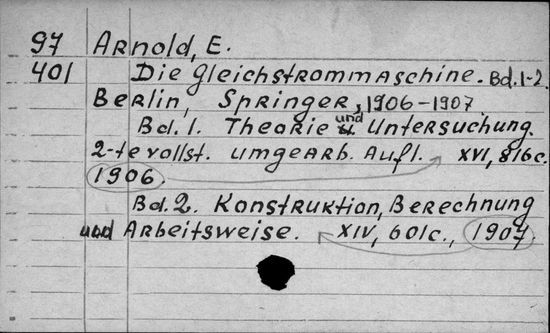 97 Arnold, E.
401 Die Gleichstrommaschine. Bd. 1-2.
Berlin, Springer, 1906-1907
Bd. 1. Theorie und Untersuchung.
2-te vollst. umgearb. Aufl. XVI, 816c.
1906.
Bd. 2. Konstruktion, Berechnung
und Arbeitsweise. XIV, 601c., 1907.